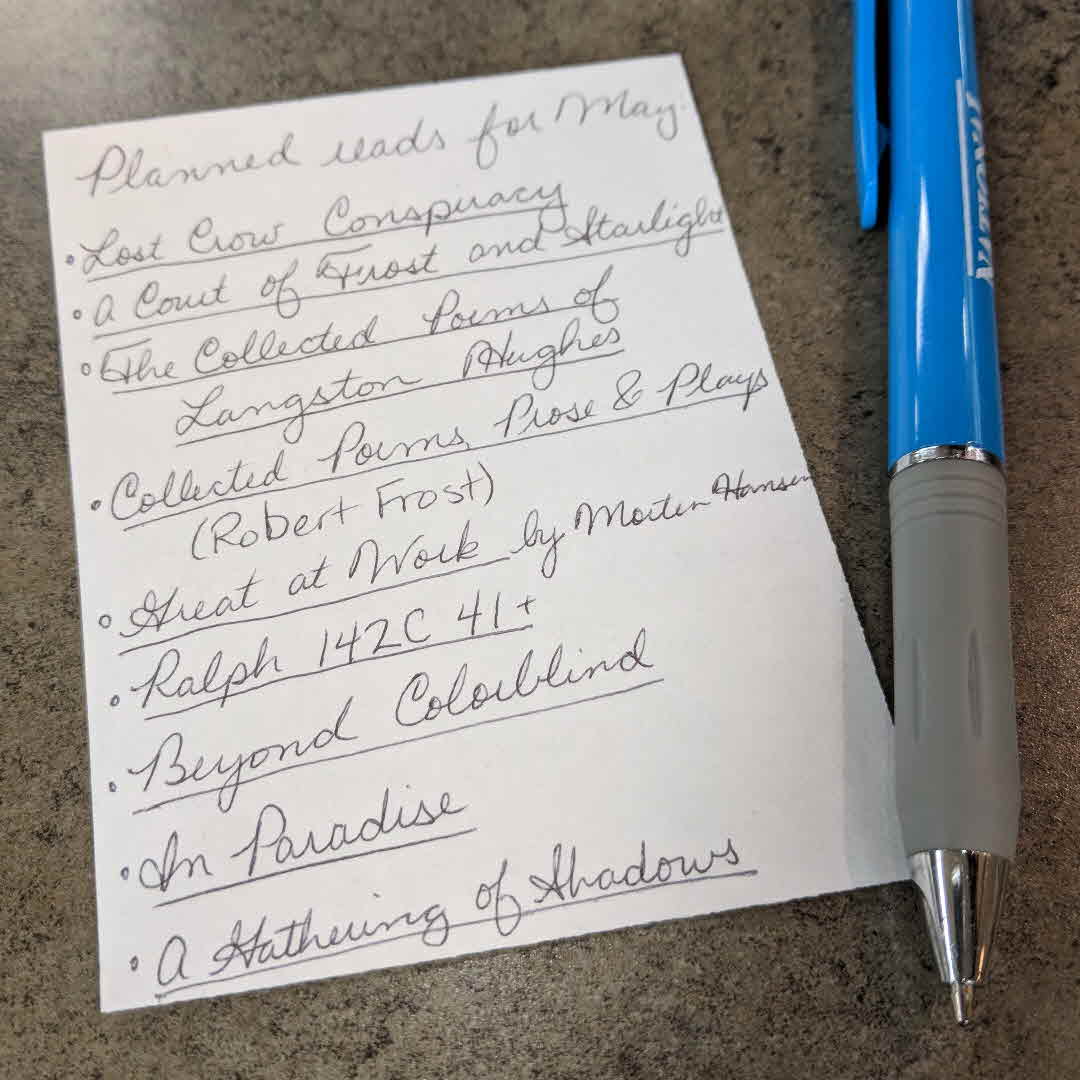 Planned reads for May.
• Lost Crow Conspiracy
• A Court of Frost and Starlight
• The Collected Poems of
Langston Hughes
• Collected Poems, Prose & Plays
(Robert Frost)
• Great at Work by Morten Hansen
• Ralph 142C 41+
• Beyond Colorblind
• In Paradise
• A Gathering of Shadows